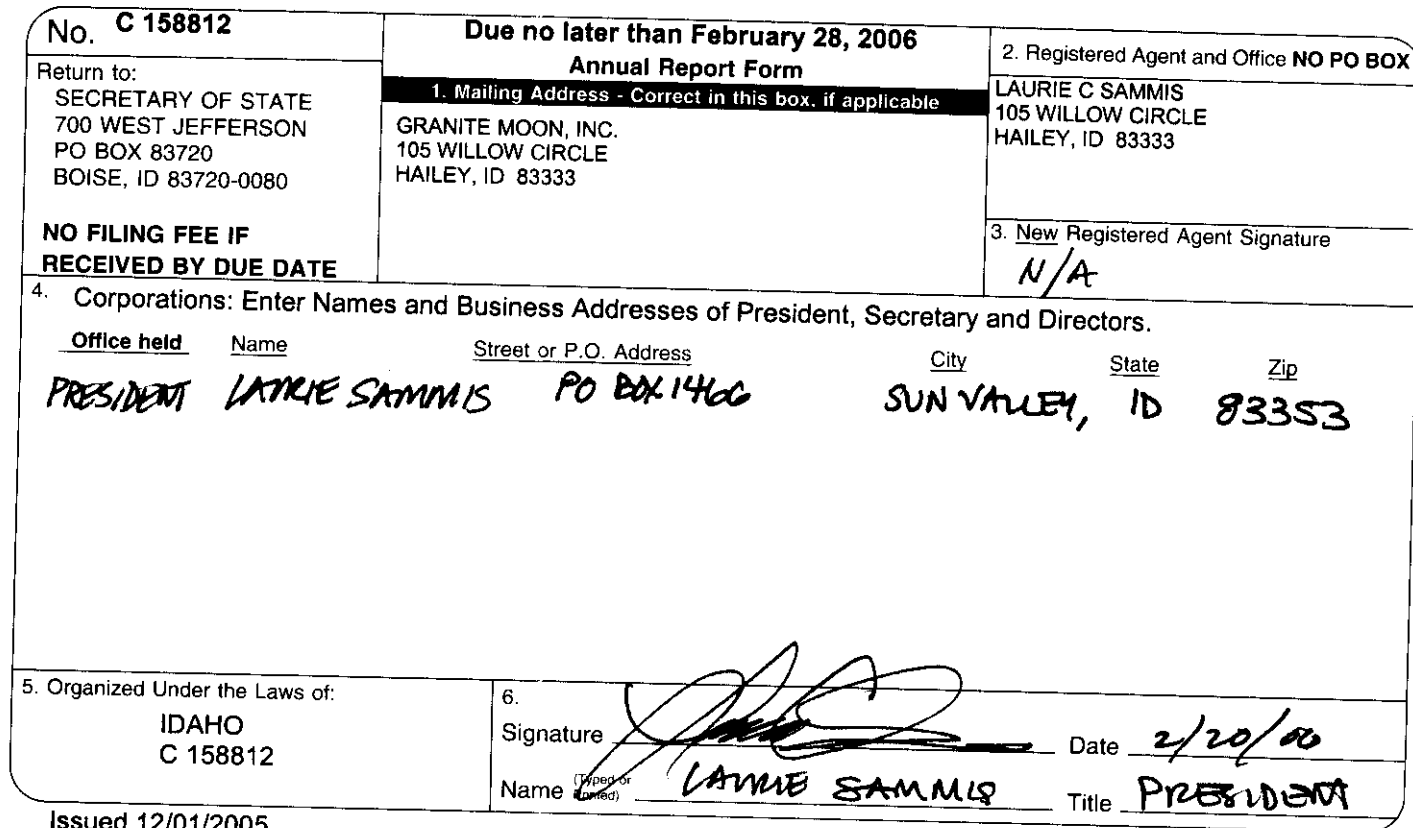 No. C 158812
Return to:
SECRETARY OF STATE
700 WEST JEFFERSON
PO BOX 83720
BOISE, ID 83720-0080
NO FILING FEE IF
RECEIVED BY DUE DATE
Due no later than February 28, 2006
Annual Report Form
1. Mailing Address - Correct in this box, if applicable
GRANITE MOON, INC.
105 WILLOW CIRCLE
HAILEY, ID 83333
2. Registered Agent and Office NO PO BOX
LAURIE C SAMMIS
105 WILLOW CIRCLE
HAILEY, ID 83333
3. New Registered Agent Signature
N/A
4. Corporations: Enter Names and Business Addresses of President, Secretary and Directors.
Office held Name Street or P.O. Address City State Zip
PRESIDENT LAURIE SAMMIS PO BOX 1466 SUN VALLEY, ID 83353
5. Organized Under the Laws of:
IDAHO
C 158812
6.
Signature Date 2/20/06
Name (Typed or Printed) LAURIE SAMMIS Title PRESIDENT
Issued 12/01/2005